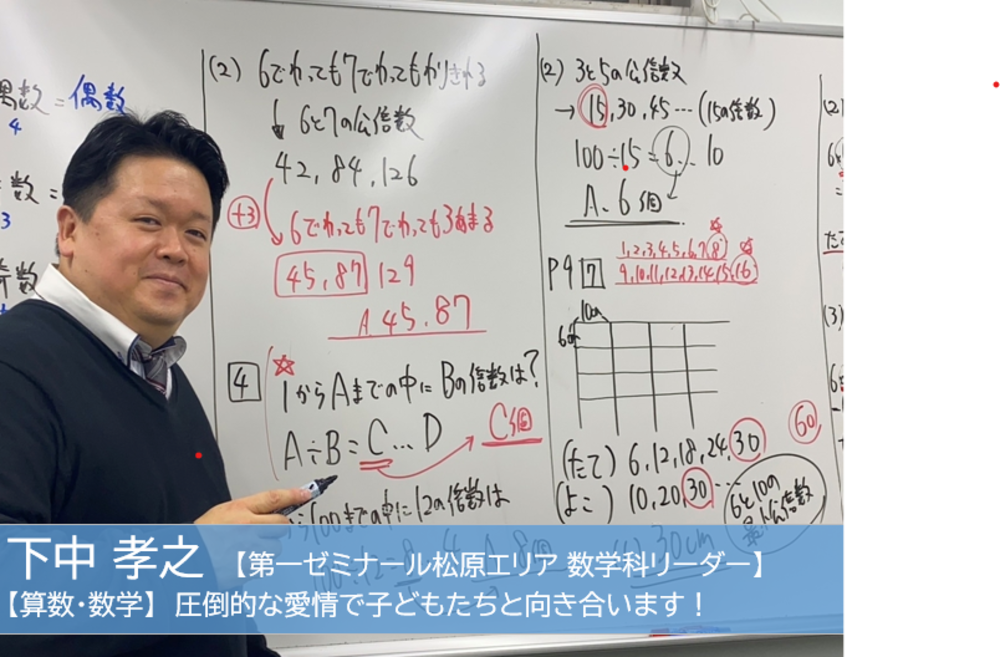 偶数=偶数
4
数=
3
(2) 6でわっても7でわってもわりきれる
↓ 6と7の公倍数
42, 84, 126
+3
6でわっても7でわっても3あまる
45, 87, 129
A. 45, 87
4
☆ 1からAまでの中にBの倍数は?
A÷B=C…D
C個
100までの中に12の倍数は
(2) 3と5の公倍数
→ 15, 30, 45 … (15の倍数)
100÷15=6…10
A. 6個
P9 7
1,2,3,4,5,6,7,8
9,10,11,12,13,14,15,16
10cm
(たて) 6, 12, 18, 24, 30
(よこ) 10, 20, 30 …
60
6と10の
最小公倍数
A 8個
30cm
(2)
(3)
下中 孝之 【第一ゼミナール松原エリア 数学科リーダー】
【算数・数学】圧倒的な愛情で子どもたちと向き合います!